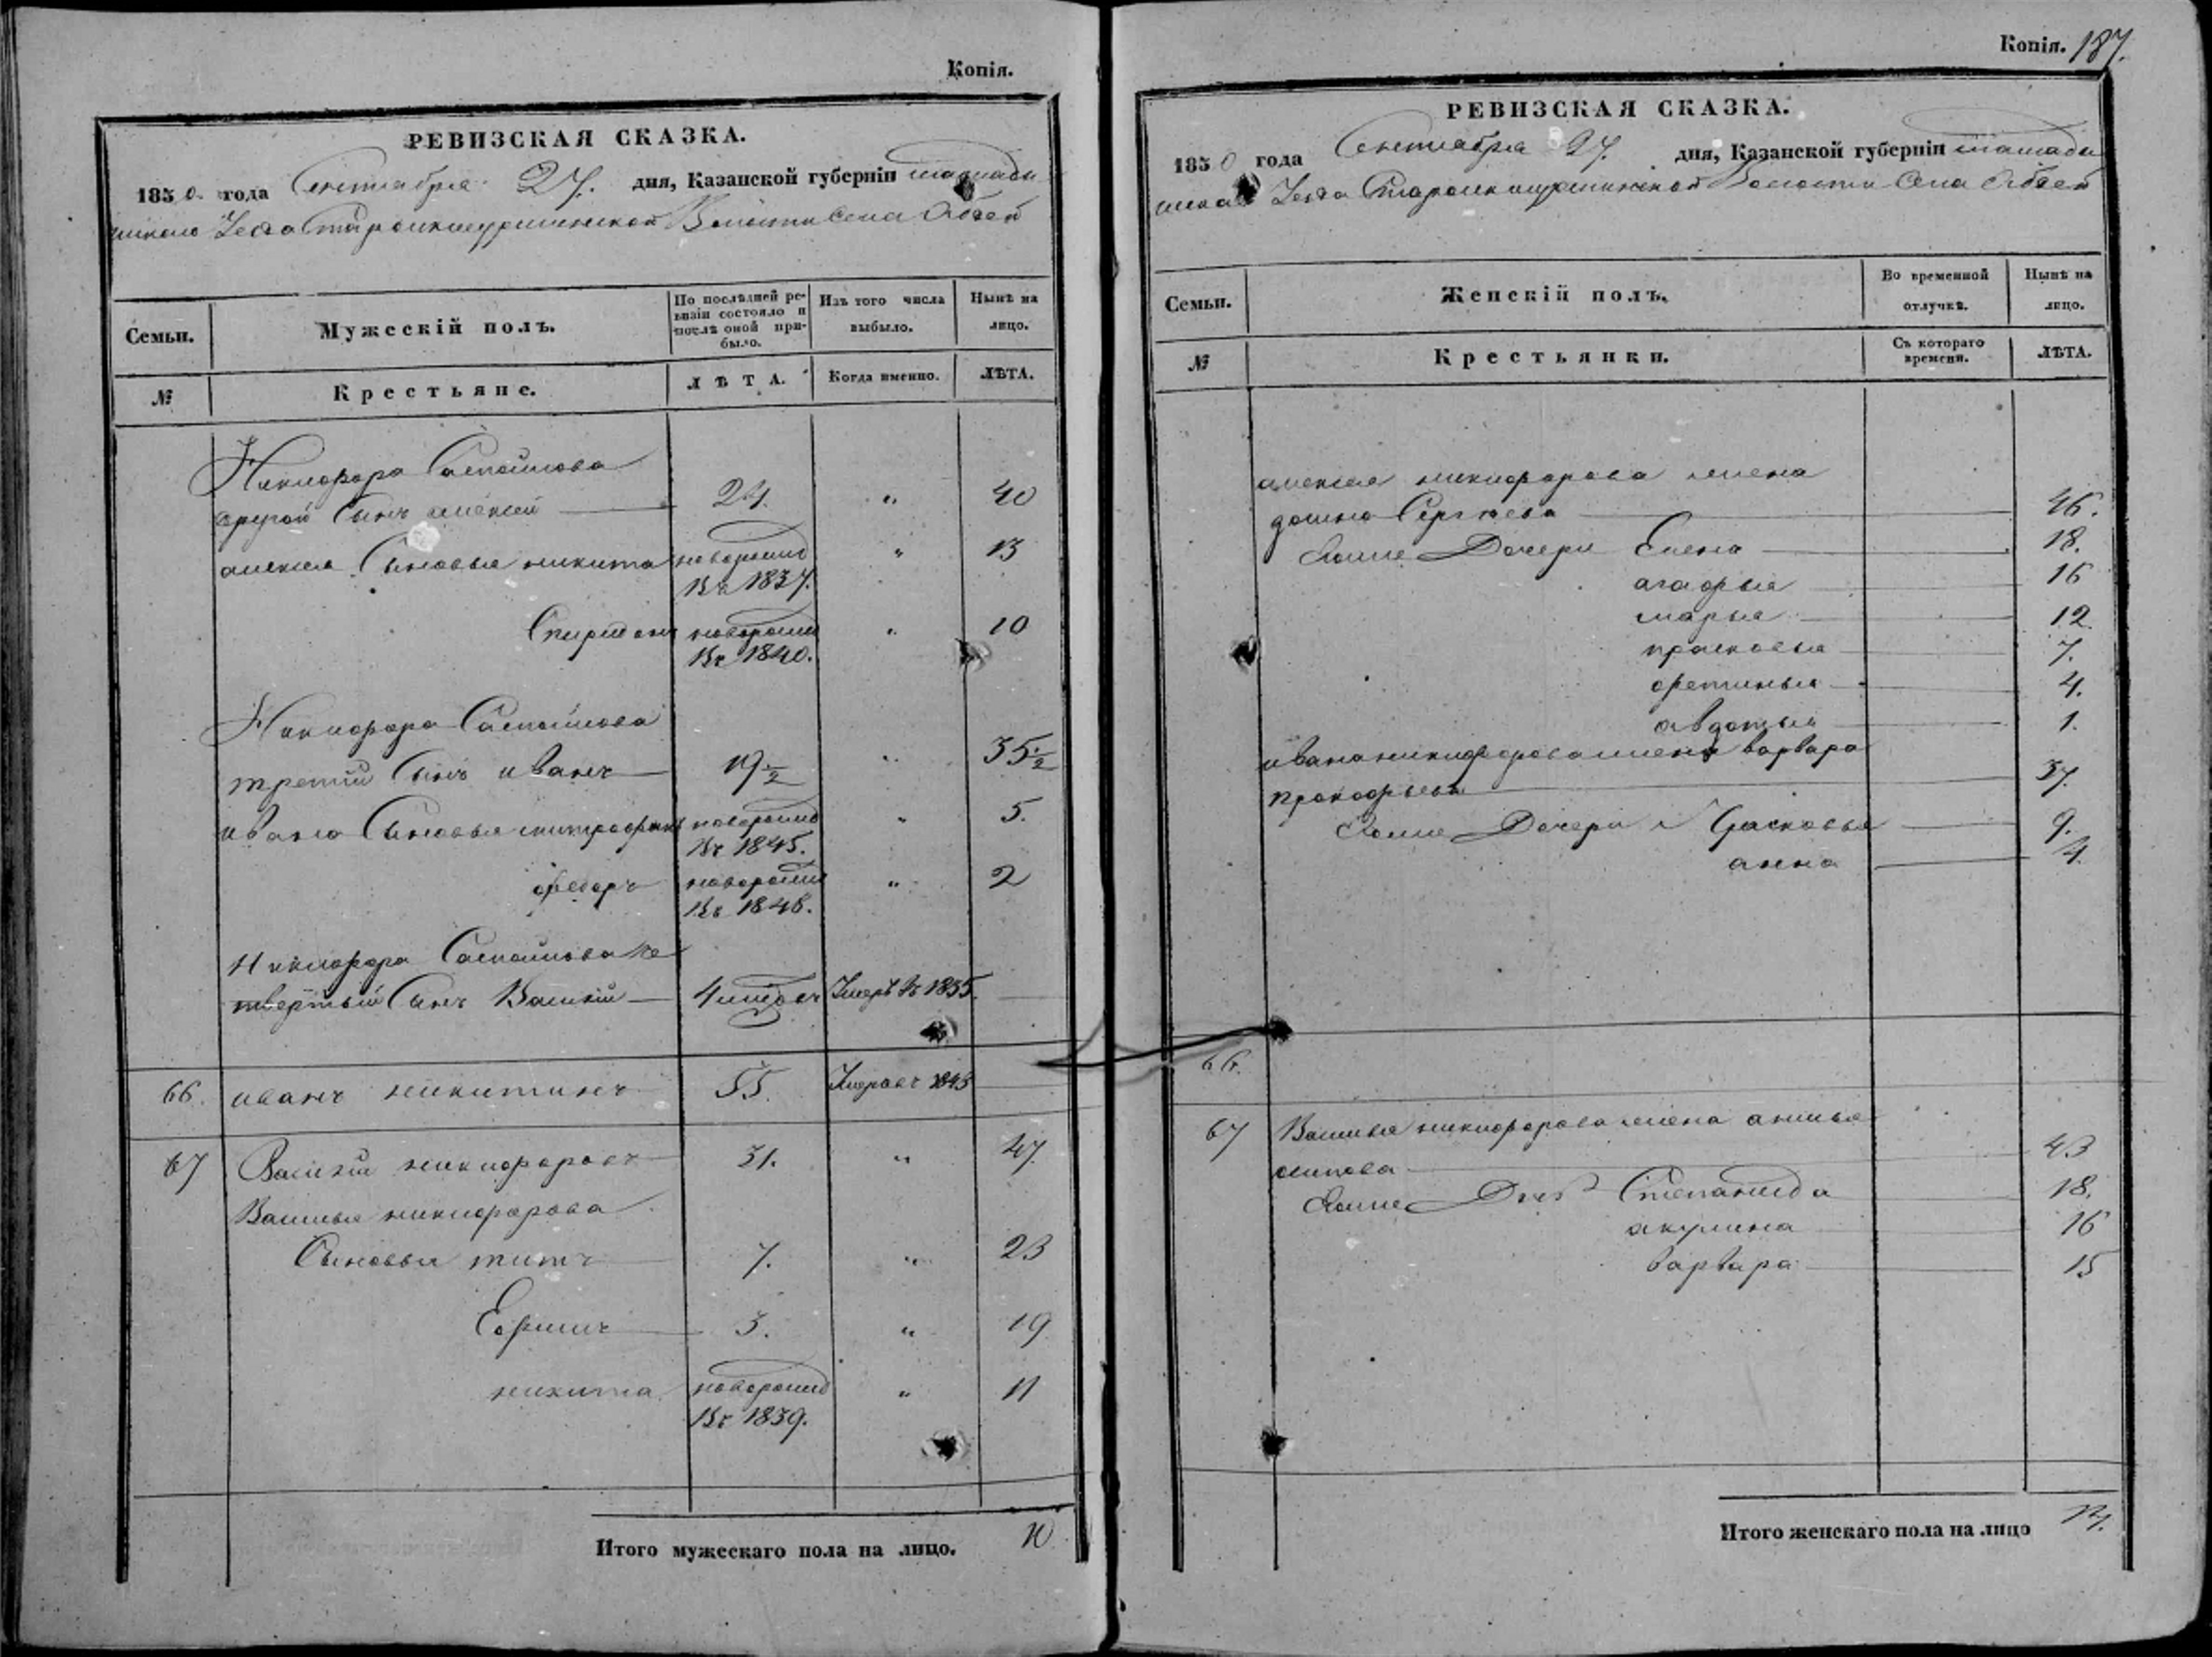 Копія.
РЕВИЗСКАЯ СКАЗКА.
1850 года Сентября 27. дня, Казанской губерніи
Уезда Волости Села
Семьи.
Мужескій полъ.
По послѣдней ревизіи состояло и послѣ оной прибыло.
Изъ того числа выбыло.
Нынѣ на лицо.
№
Крестьяне.
ЛѢТА.
Когда именно.
ЛѢТА.
Никифора
другой Сынъ алексей 24. " 40
алексея Сыновья никита новорожд " 13
въ 1837.
Спиридонъ новорожд " 10
въ 1840.
Никифора
третий Сынъ иванъ 19½ " 35½
ивана Сыновья митрофанъ новорожд " 5.
въ 1845.
федоръ новорожд " 2
въ 1848.
Никифора че
твертый Сынъ Василий 4 Умеръ въ 1835.
66. иванъ никитинъ 55. Умеръ въ 1843
67 Василий никифоровъ 31. " 47.
Василья никифорова
Сыновья титъ 7. " 23
Ефимъ 3. " 19
никита новорожд " 11
въ 1839.
Итого мужескаго пола на лицо. 10
Копія. 187.
РЕВИЗСКАЯ СКАЗКА.
1850 года Сентября 27. дня, Казанской губерніи
Уезда Волости Села
Семьи.
Женскій полъ.
Во временной отлучкѣ.
Нынѣ на лицо.
№
Крестьянки.
Съ котораго времени.
ЛѢТА.
алексея никифорова жена
домна Сергеева 46.
Ихъ Дочери Елена 18.
агафья 16
марья 12
прасковья 7.
фетинья 4.
авдотья 1.
ивана никифорова жена варвара
прокофьева 37.
Дочери Прасковья 9.
анна 4.
66.
67 Василья никифорова жена
осипова 43
Степанида 18.
акулина 16
варвара 15
Итого женскаго пола на лицо